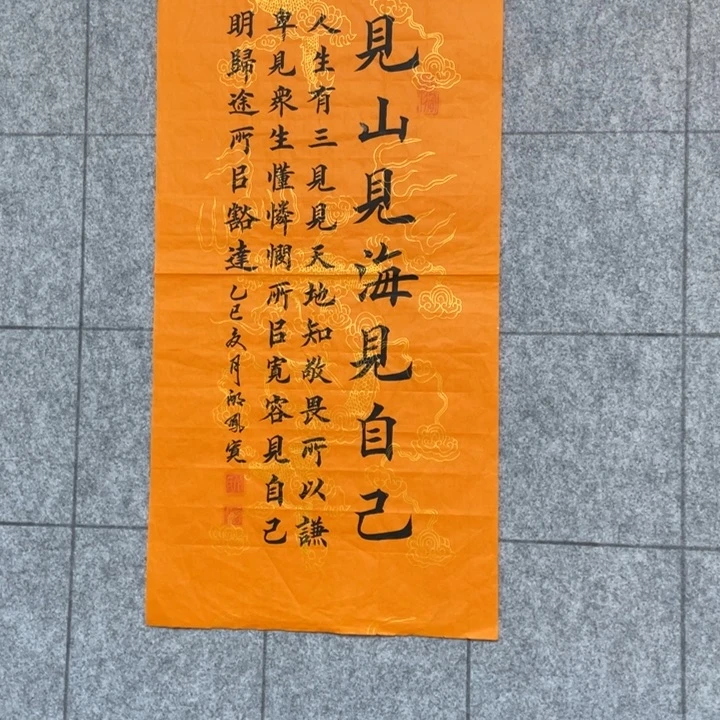 見山見海見自己
人生有三見見天地知敬畏所以謙
卑見衆生懂憐憫所㠯寬容見自己
明歸途所㠯豁達乙巳夏月